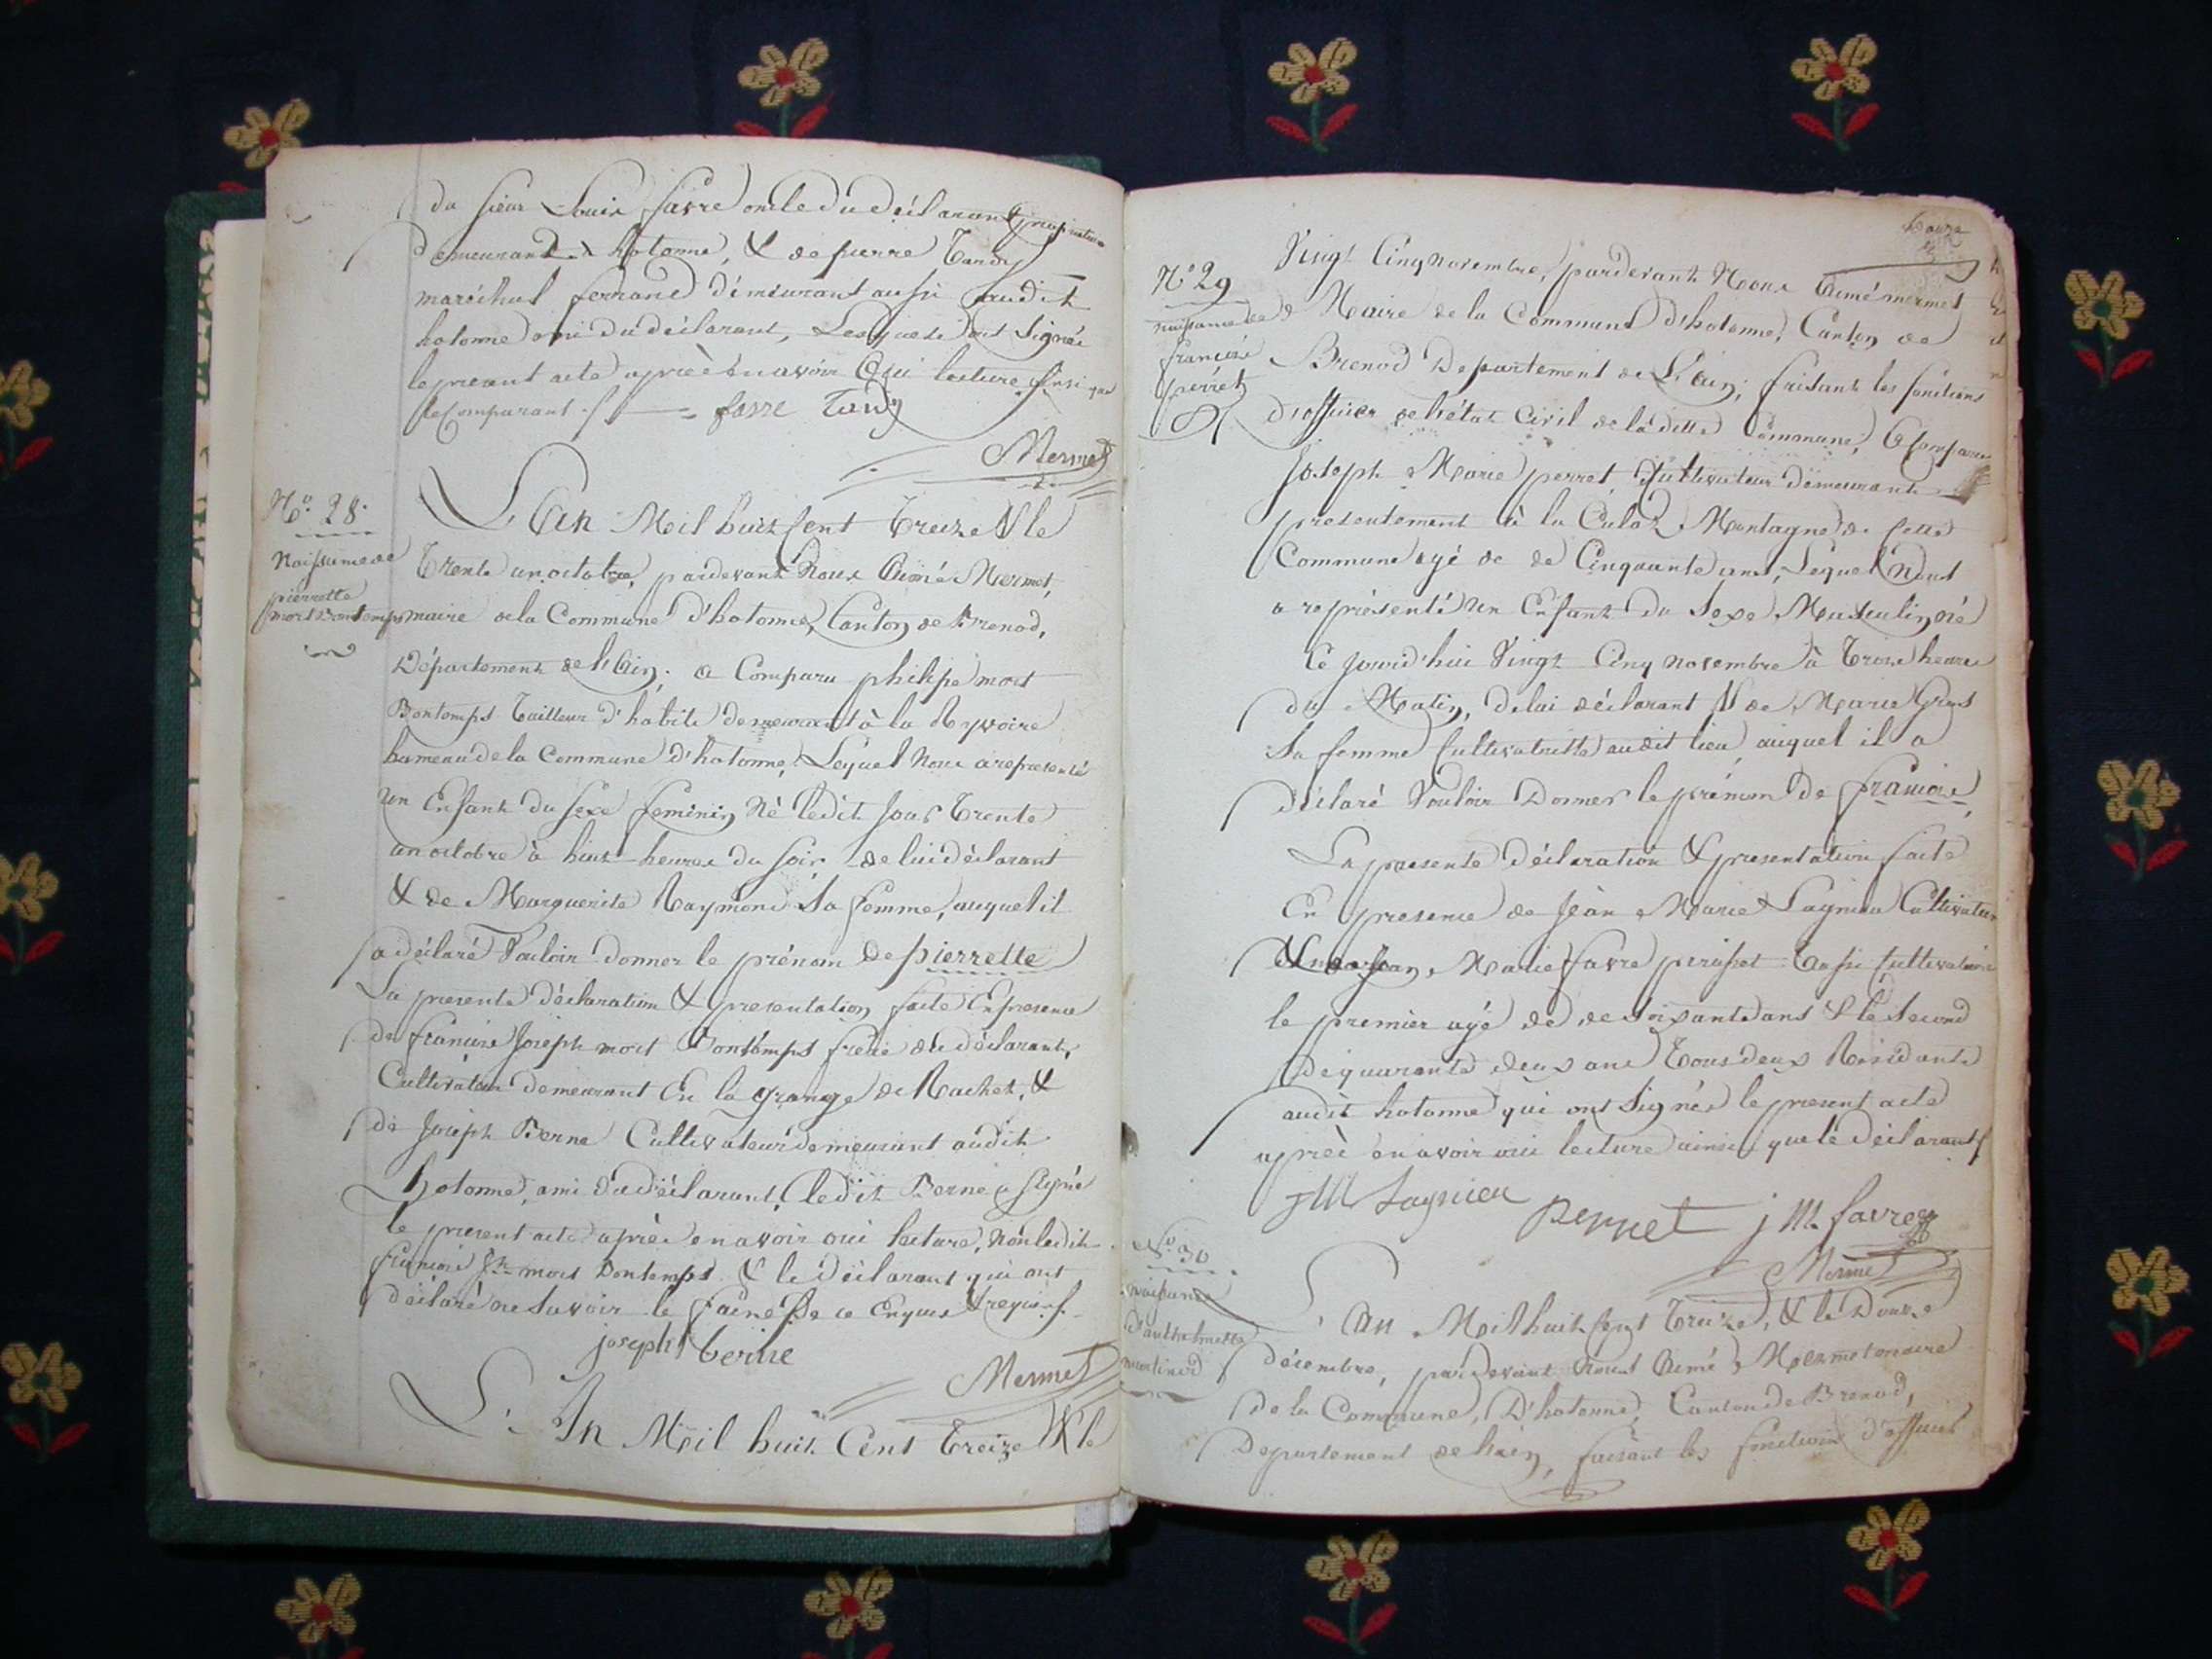 du sieur Louis favre oncle du déclarant propriétaire
demeurant à hotonne, & de pierre Tardy
maréchal ferrand démeurant aussi audit
hotonne ami du déclarant, Lesquels ont Signés
le présent acte après en avoir Oui lecture ainsi que
le Comparant ./.
favre Tardy
Mermet
N.o 28.
Naissance de
pierrette
mort Bontemps
L'An Mil huit Cent Treize & le
Trente un octobre, pardevant Nous Aimé Mermet,
maire de la Commune d'hotonne, Canton de Brenod,
Département de l'Ain; a Comparu philipe mort
Bontemps Tailleur d'habits demeurant à la Ryvoire
hameau de la Commune d'hotonne, Lequel Nous a representé
un Enfant du sexe feminin Né ledit Jour Trente
un octobre à huit heures du soir de lui déclarant
& de Marguerite Raymond Sa femme, auquel il
a déclaré Vouloir donner le prénom De pierrette
La presente déclaration & presentation faite En presence
de francois Joseph mort Bontemps frère du déclarant,
Cultivateur demeurant En la grange de Rachet, &
de Joseph Berne Cultivateur demeurant audit
hotonne, ami du déclarant, ledit Berne a signé
le present acte après en avoir oui lecture, Non ledit
francois Jh mort Bontemps & le déclarant qui ont
déclaré ne Savoir le faire De ce Enquis & requis ./.
joseph berne
Mermet
L'An Mil huit Cent Treize & le
Douze
N.o 29
naissance de
françois
perret
Vingt Cinq Novembre, pardevant Nous Aimé mermet
Maire de la Commune d'hotonne, Canton de
Brenod Departement de L'ain; faisant les fonctions
D'officier de l'état Civil de la ditte Commune, A Comparu
Joseph Marie perret Cultivateur demeurant
présentement à la Culaz Montagne de Cette
Commune agé de de Cinquante ans, Lequel Nous
a représenté Un Enfant du Sexe Masculin né
Ce Jourd'hui Vingt Cinq novembre à Trois heures
du Matin, De lui déclarant & de Marie Gros
Sa femme Cultivatrice audit lieu, auquel il a
Déclaré Vouloir Donner le prénom De francois,
La presente Déclaration & presentation faite
En presence de Jean Marie Lagnieu Cultivateur
Jean Marie favre perusset Aussi Cultivateur
le premier agé de de Soixante ans & le Second
De quarante deux ans Tous deux Residants
audit hotonne qui ont Signés le present acte
après en avoir oui lecture ainsi que le Déclarant
JM Lagnieu perret j M favre
Mermet
N.o 30
naissance
d'anthelmette
martinod
L'An Mil huit Cent Treize, & le Douze
décembre, pardevant Nous Aimé Mermet maire
de la Commune, D'hotonne, Canton de Brenod,
Departement de l'ain, faisant les fonctions d'officier